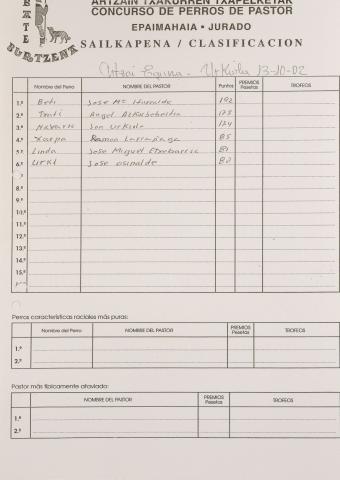 ARTZAIN TXAKURREN TXAPELKETAK
CONCURSO DE PERROS DE PASTOR
EPAIMAHAIA • JURADO
SAILKAPENA / CLASIFICACION
Urkiola 13-10-02
Nombre del Perro NOMBRE DEL PASTOR Puntos PREMIOS Pesetas TROFEOS
1.º Beti Jose Mª Iturralde 192
2.º Txuti Angel Azkubebeitia 175
3.º Navarra Jon Urkiola 174
4.º Xarpa Ramon Larrañaga 85
5.º Linda Jose Miguel Etxebarria 81
6.º Urki Jose osinalde 80
7.º
8.º
9.º
10.º
11.º
12.º
13.º
14.º
15.º
Perros características raciales más puras:
Nombre del Perro NOMBRE DEL PASTOR PREMIOS Pesetas TROFEOS
1.º
2.º
Pastor más típicamente ataviado:
NOMBRE DEL PASTOR PREMIOS Pesetas TROFEOS
1.º
2.º